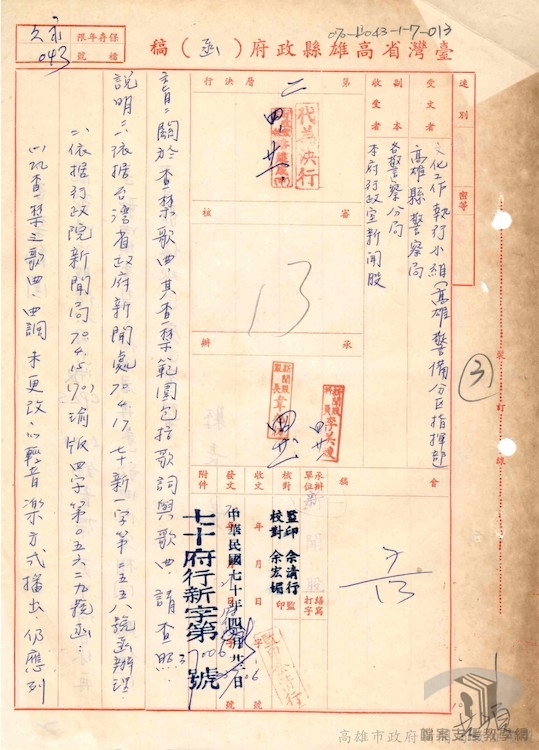 070-H043-1-7-013
檔號
043
保存年限
永久
臺灣省高雄縣政府（函）稿
速別
密等
受文者
文化工作執行小組（高雄警備分區指揮部
高雄縣警察局
副本收受者
各警察分局
本府行政室新聞股
第二層決行
代為決行
核審
13
承辦
新聞股
會
稿
③
裝訂線
承辦單位
新聞股
繕寫打字
核對
監印
監印 余清行
校對 余宏媚
收文
年月日
字
號
發文
中華民國七十年四月廿三日
七十府行新字第
號
附件
主旨：關於查禁歌曲，其查禁範圍包括歌詞與歌曲，請查照。
說明：一、依據台灣省政府新聞處70.4.17.七十新一字第二五五八號函辦理。
二、依據行政院新聞局70.4.15.(70)瑜版四字第0五六二九號函：
以凡查禁之歌曲，曲調未更改，以輕音樂方式播出，仍應列
高雄市政府
檔案支援教學網